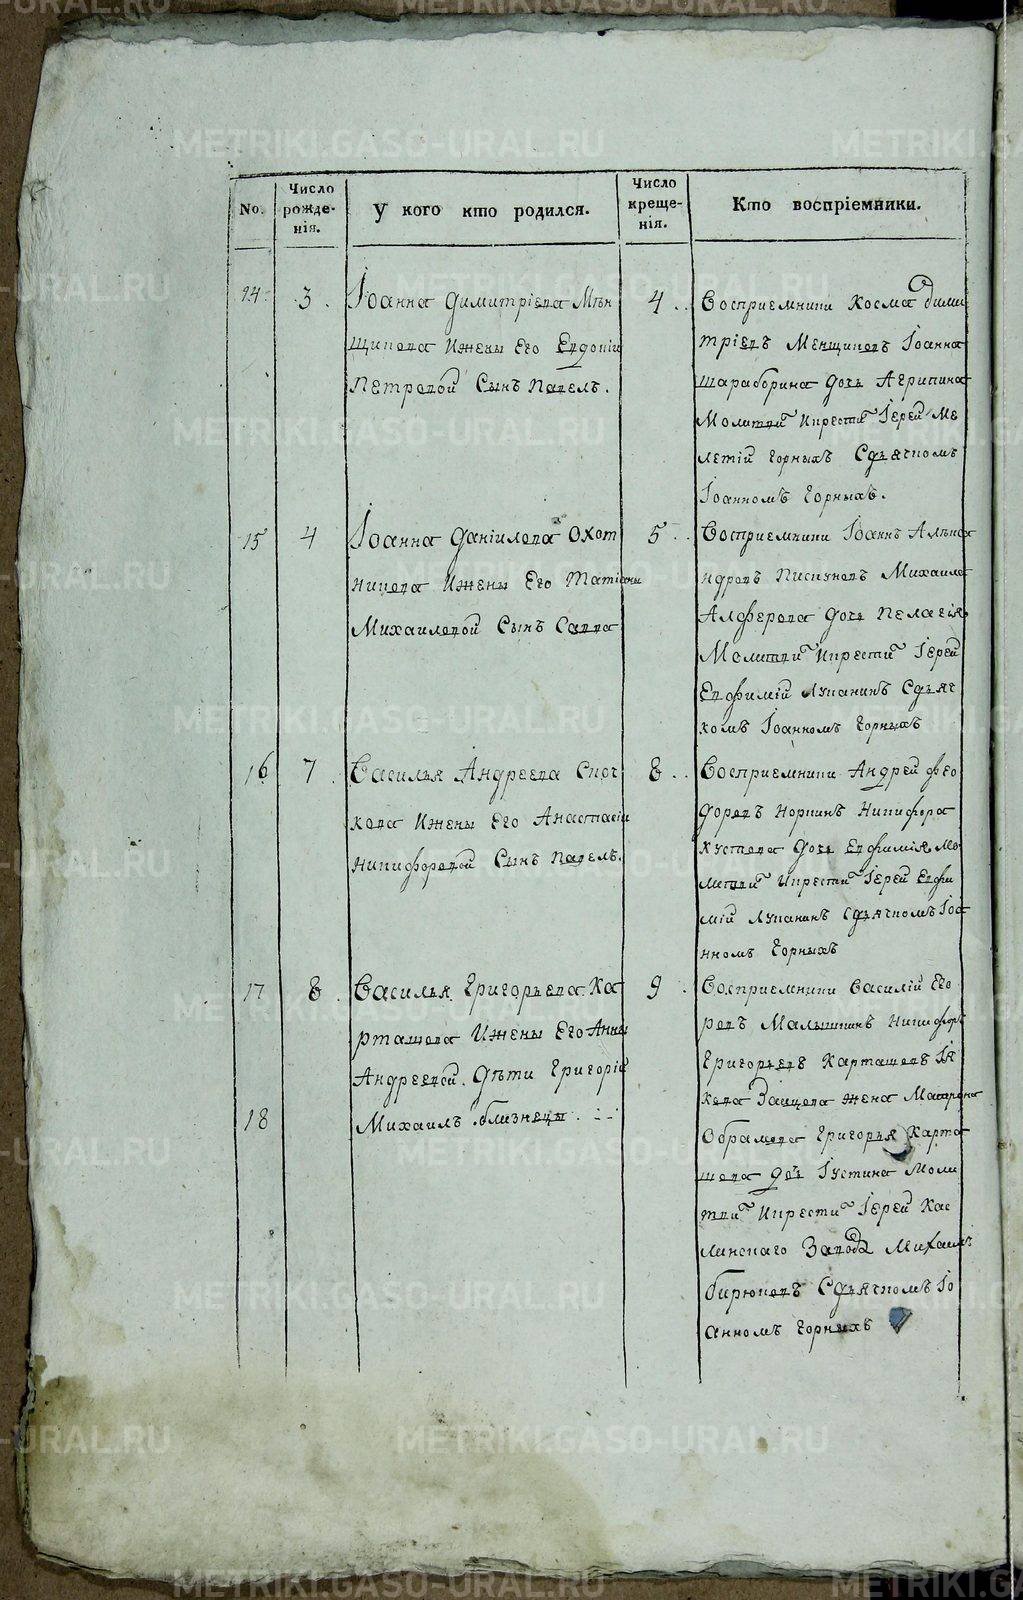 No.
Число рожде-нія.
У кого кто родился.
Число креще-нія.
Кто воспріемники.
14
3.
Іоанна Димитріева Мѣн
щикова Ижены Его Евдокіи
Петровой Сынъ Павелъ.
4
Восприемники Косма дими
тріевъ Менщиковъ Іоанна
Шараборина дочь Агрипина
Молитви Икрести Іерей Ме
летій Горныхъ Сдьячкомъ
Іоанномъ Горныхъ.
15
4
Іоанна Даніилова Охот
никова Ижены Его Татіаны
Михаиловой Сынъ Савва
5
Восприемники Іоаннъ Алекса
ндровъ Пискуновъ Михаила
Алферова дочь Пелагія
Молитви Икрести Іерей
Евфимій Луканинъ Сдьяч
комъ Іоанномъ Горныхъ
16
7.
Василья Андреева Скоч
кова Ижены Его Анастасіи
Никифоровой Сынъ Павелъ.
8
Восприемники Андрей фео
доровъ Норкинъ Никифора
Хустова дочь Евфимія Мо
литви Икрести Іерей Евфи
мій Луканинъ Сдьячкомъ Іоа
нномъ Горныхъ
17
8.
Василья Григорьева Ка
рташева Ижены Его Анны
Андреевой. Дѣти Григорій
18
Михаилъ близнецы.
9
Восприемники Василій Его
ровъ Малышкинъ Никифоръ
Григорьевъ Карташевъ Іа
кова Заицова жена Мавра
Григорья Карта
шова дочь Іустина Моли
тви Икрести Іерей Кас
линскаго Завода Михаилъ
Бирюковъ Сдьячкомъ Іо
анномъ Горныхъ
METRIKI.GASO-URAL.RU